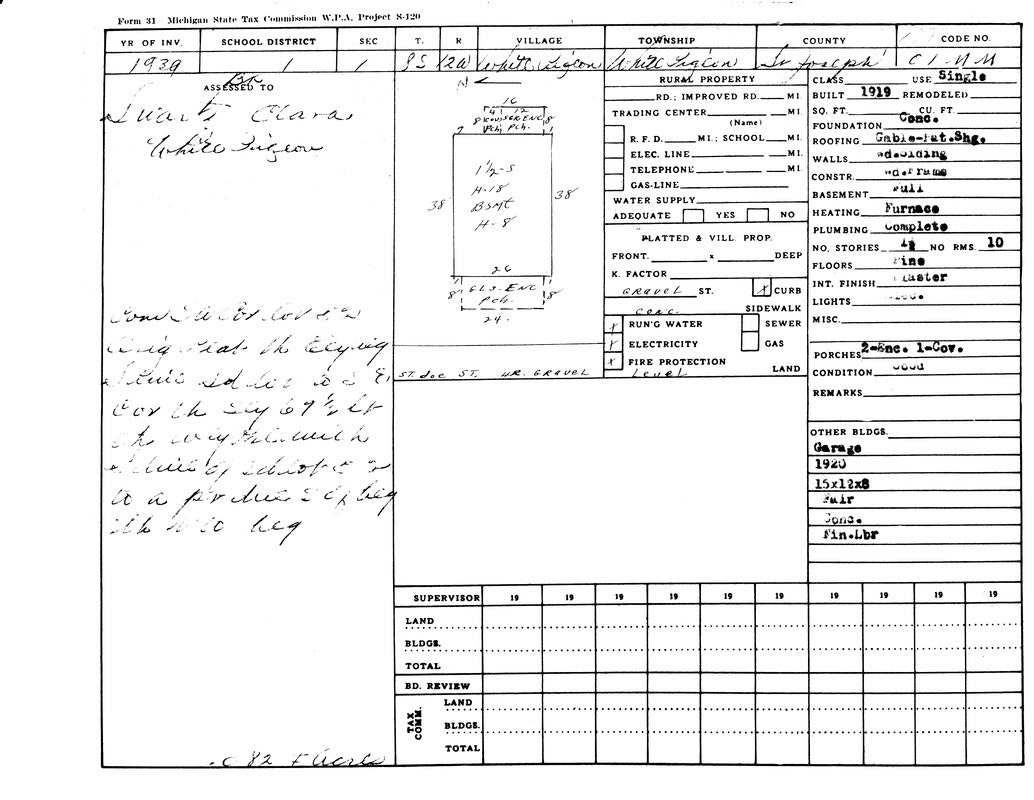 Form 31 Michigan State Tax Commission W.P.A. Project S-120
YR OF INV. SCHOOL DISTRICT SEC T. R VILLAGE TOWNSHIP COUNTY CODE NO.
1939 1 1 8S 12W White Pigeon White Pigeon St Joseph
ASSESSED TO
Swartz Clara
White Pigeon
N
16
4 12
8 8
Pch. Pch.
7 1
1½-S
H-18
BSMT
H-8
38 38
26
GLS. ENC
Pch.
8 8
24.
RURAL PROPERTY
RD.; IMPROVED RD. MI.
TRADING CENTER MI.
(Name)
R. F. D. MI.; SCHOOL MI.
ELEC. LINE MI.
TELEPHONE MI.
GAS-LINE
WATER SUPPLY
ADEQUATE YES NO
PLATTED & VILL. PROP.
FRONT. x DEEP
K. FACTOR
GRAVEL ST. X CURB
CONC. SIDEWALK
X RUN'G WATER SEWER
X ELECTRICITY GAS
X FIRE PROTECTION
LEVEL LAND
ST. Joe ST. HR. GRAVEL
CLASS USE Single
BUILT 1919 REMODELED
SQ. FT. CU. FT.
FOUNDATION Conc.
ROOFING Gable-Pat.Shg.
WALLS Wd.Siding
CONSTR. Wd.Frame
BASEMENT Full
HEATING Furnace
PLUMBING Complete
NO. STORIES 1½ NO RMS. 10
FLOORS Pine
INT. FINISH Plaster
LIGHTS
MISC.
PORCHES 2-Enc. 1-Cov.
CONDITION Good
REMARKS
OTHER BLDGS.
Garage
1920
15x12x8
Fair
Conc.
Fin.Lbr
Com
Orig Plat th Ely
S line sd lot to S E
Cor th Sly 69½ ft
th
S line of sd lot
to a pt due S of beg
th N to beg
82
SUPERVISOR 19 19 19 19 19 19 19 19 19 19
LAND
BLDGS.
TOTAL
BD. REVIEW
TAX COMM.
LAND
BLDGS.
TOTAL